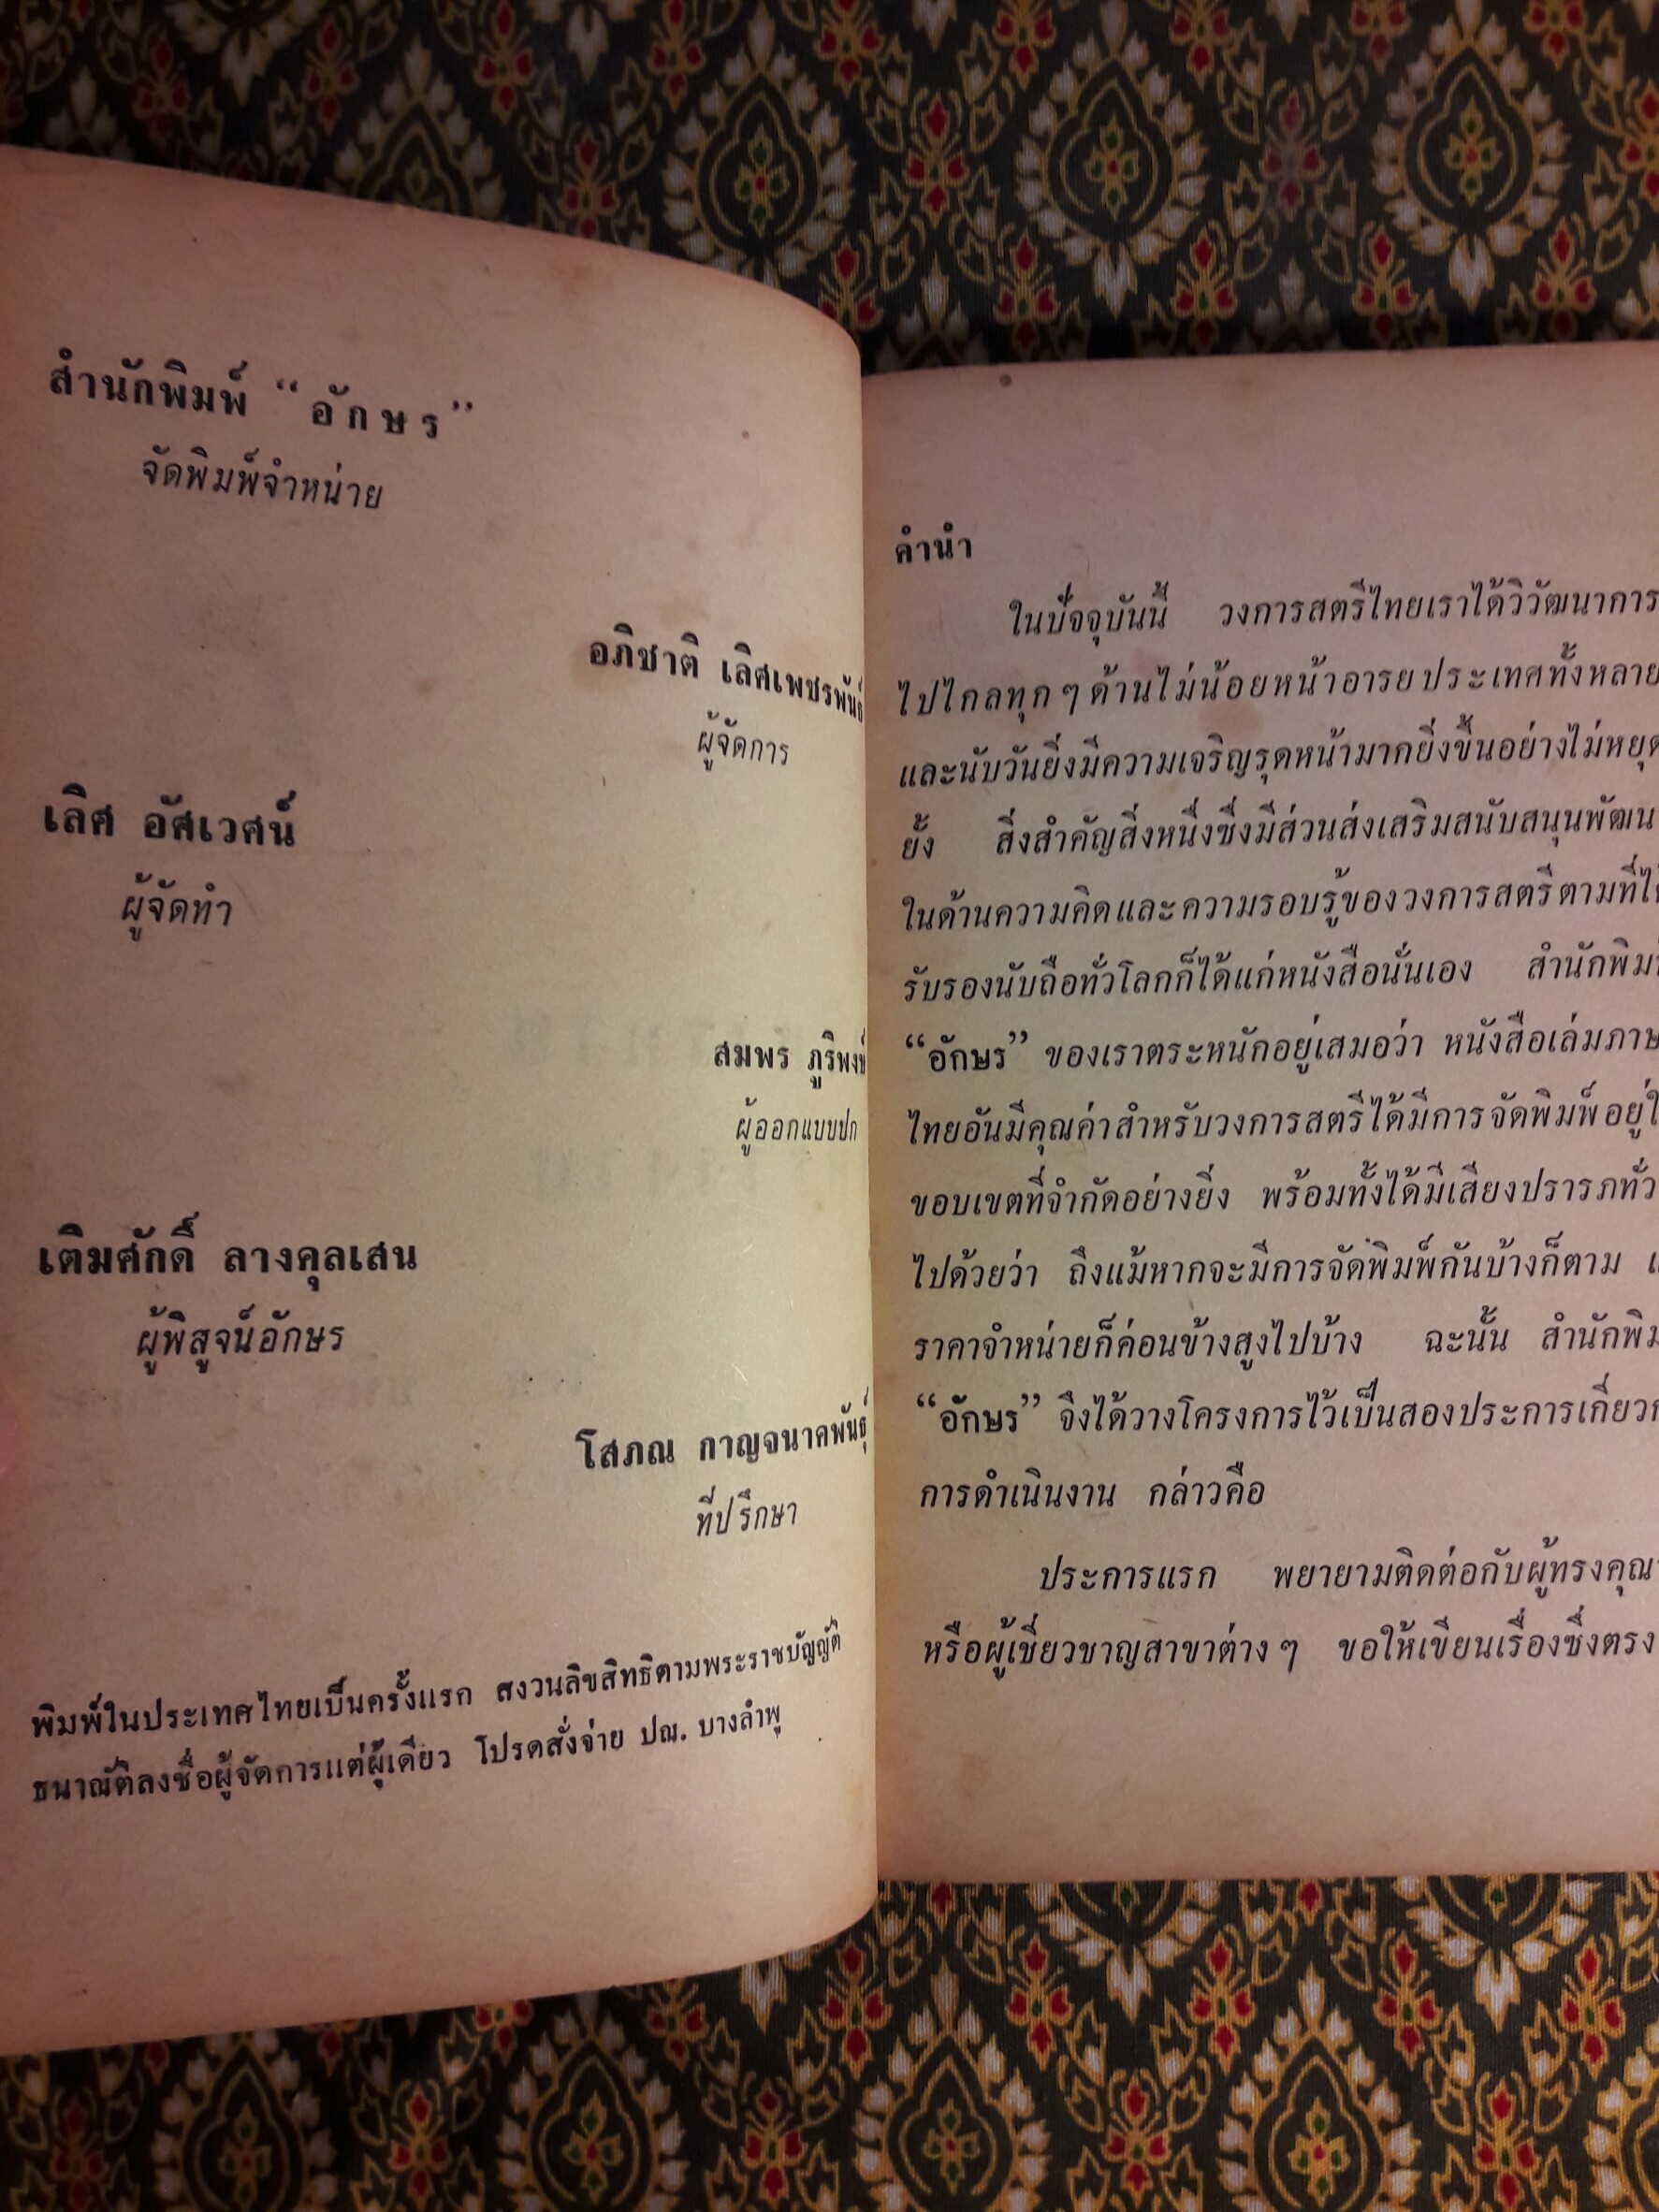 สำนักพิมพ์ “อักษร”
จัดพิมพ์จำหน่าย
อภิชาติ เลิศเพชรพันธุ์
ผู้จัดการ
เลิศ อัศเวศน์
ผู้จัดทำ
สมพร ภูริพงษ์
ผู้ออกแบบปก
เติมศักดิ์ ลางคุลเสน
ผู้พิสูจน์อักษร
โสภณ กาญจนาคพันธุ์
ที่ปรึกษา
พิมพ์ในประเทศไทยเป็นครั้งแรก สงวนลิขสิทธิตามพระราชบัญญัติ
ธนาณัติลงชื่อผู้จัดการแต่ผู้เดียว โปรดสั่งจ่าย ปณ. บางลำพู
คำนำ
ในปัจจุบันนี้ วงการสตรีไทยเราได้วิวัฒนาการ
ไปไกลทุก ๆ ด้านไม่น้อยหน้าอารยประเทศทั้งหลาย
และนับวันยิ่งมีความเจริญรุดหน้ามากยิ่งขึ้นอย่างไม่หยุด
ยั้ง สิ่งสำคัญสิ่งหนึ่งซึ่งมีส่วนส่งเสริมสนับสนุนพัฒน
ในด้านความคิดและความรอบรู้ของวงการสตรีตามที่ได้
รับรองนับถือทั่วโลกก็ได้แก่หนังสือนั่นเอง สำนักพิมพ์
“อักษร” ของเราตระหนักอยู่เสมอว่า หนังสือเล่มภาษ
ไทยอันมีคุณค่าสำหรับวงการสตรีได้มีการจัดพิมพ์อยู่ใ
ขอบเขตที่จำกัดอย่างยิ่ง พร้อมทั้งได้มีเสียงปรารภทั่ว
ไปด้วยว่า ถึงแม้หากจะมีการจัดพิมพ์กันบ้างก็ตาม
ราคาจำหน่ายก็ค่อนข้างสูงไปบ้าง ฉะนั้น สำนักพิม
“อักษร” จึงได้วางโครงการไว้เป็นสองประการเกี่ยวก
การดำเนินงาน กล่าวคือ
ประการแรก พยายามติดต่อกับผู้ทรงคุณ
หรือผู้เชี่ยวชาญสาขาต่าง ๆ ขอให้เขียนเรื่องซึ่งตรง